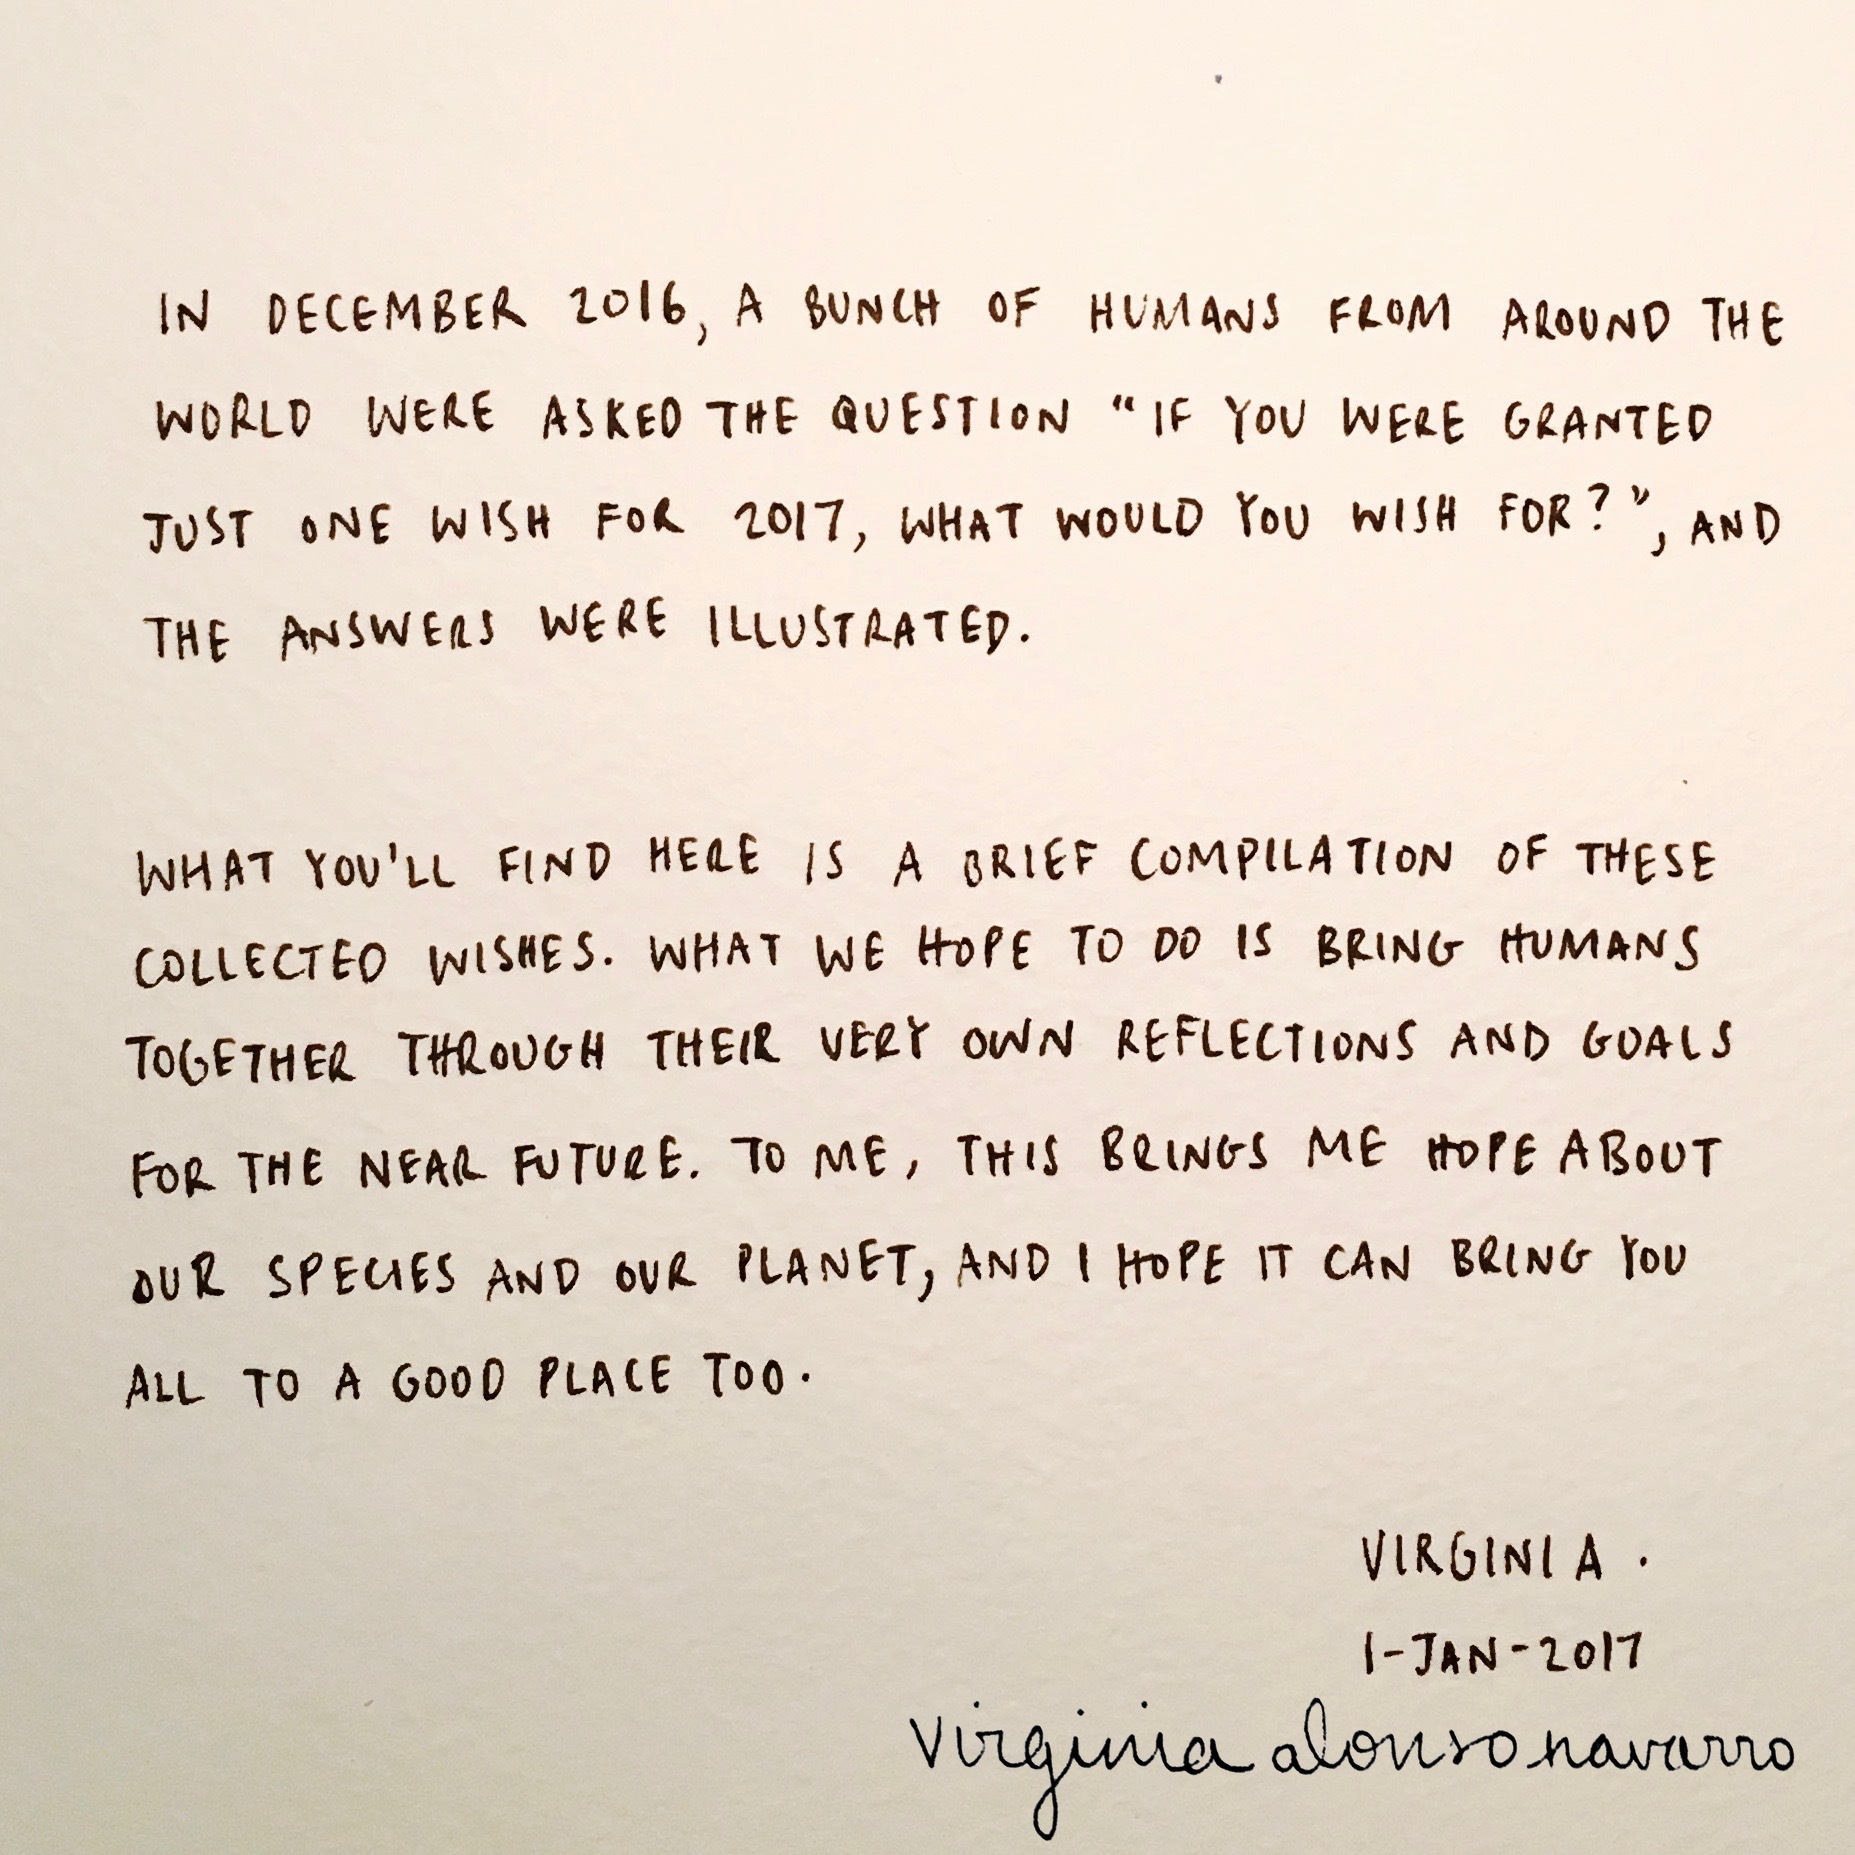 IN DECEMBER 2016, A BUNCH OF HUMANS FROM AROUND THE
WORLD WERE ASKED THE QUESTION "IF YOU WERE GRANTED
JUST ONE WISH FOR 2017, WHAT WOULD YOU WISH FOR?", AND
THE ANSWERS WERE ILLUSTRATED.
WHAT YOU'LL FIND HERE IS A BRIEF COMPILATION OF THESE
COLLECTED WISHES. WHAT WE HOPE TO DO IS BRING HUMANS
TOGETHER THROUGH THEIR VERY OWN REFLECTIONS AND GOALS
FOR THE NEAR FUTURE. TO ME, THIS BRINGS ME HOPE ABOUT
OUR SPECIES AND OUR PLANET, AND I HOPE IT CAN BRING YOU
ALL TO A GOOD PLACE TOO.
VIRGINIA.
1-JAN-2017
Virginia alonso navarro